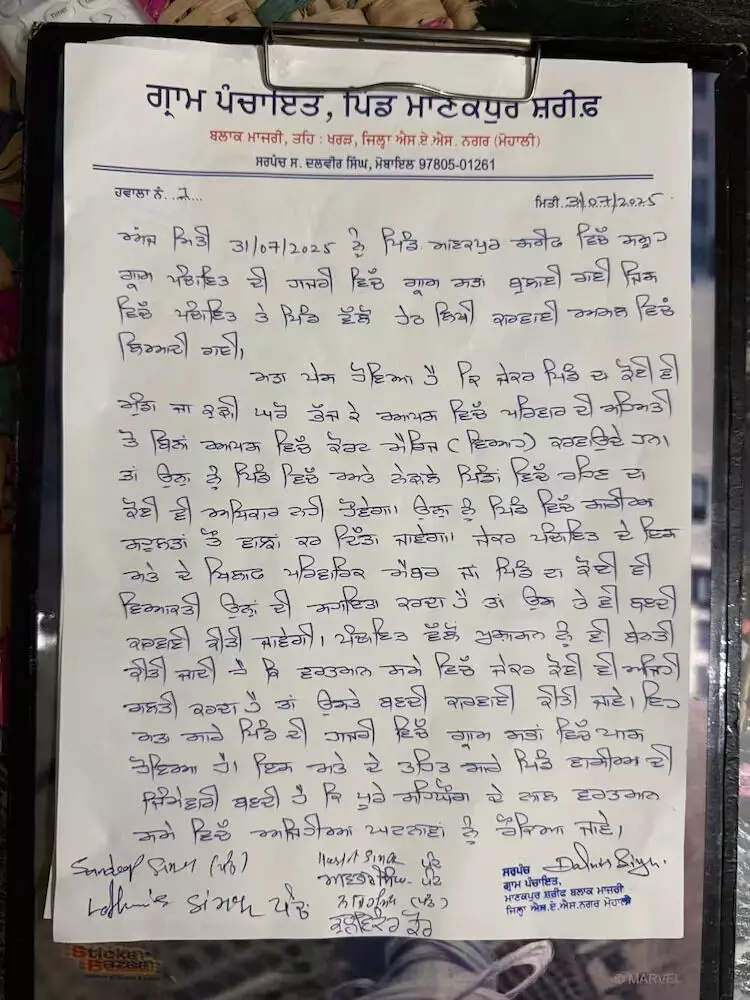 ਗ੍ਰਾਮ ਪੰਚਾਇਤ, ਪਿੰਡ ਮਾਣਕਪੁਰ ਸ਼ਰੀਫ਼
ਬਲਾਕ ਮਾਜਰੀ, ਤਹਿ : ਖਰੜ, ਜਿਲ੍ਹਾ ਐਸ.ਏ.ਐਸ. ਨਗਰ (ਮੋਹਾਲੀ)
ਸਰਪੰਚ ਸ. ਦਲਵੀਰ ਸਿੰਘ, ਮੋਬਾਇਲ 97805-01261
ਹਵਾਲਾ ਨੰ. ਮਿਤੀ 31/07/2025
ਅੱਜ ਮਿਤੀ 31/07/2025 ਨੂੰ ਪਿੰਡ ਮਾਣਕਪੁਰ ਸ਼ਰੀਫ ਵਿੱਚ ਸਮੂਹ
ਗ੍ਰਾਮ ਪੰਚਾਇਤ ਦੀ ਹਾਜਰੀ ਵਿੱਚ ਗ੍ਰਾਮ ਸਭਾ ਬੁਲਾਈ ਗਈ ਜਿਸ
ਵਿੱਚ ਪੰਚਾਇਤ ਤੇ ਪਿੰਡ ਵੱਲੋਂ ਹੇਠ ਲਿਖੀ ਕਾਰਵਾਈ ਅਮਲ ਵਿੱਚ
ਲਿਆਂਦੀ ਗਈ।
ਮਤਾ ਪੇਸ਼ ਹੋਇਆ ਹੈ ਕਿ ਜੇਕਰ ਪਿੰਡ ਦਾ ਕੋਈ ਵੀ
ਮੁੰਡਾ ਜਾ ਕੁੜੀ ਘਰੋਂ ਭੱਜ ਕੇ ਆਪਸ ਵਿੱਚ ਪਰਿਵਾਰ ਦੀ ਸਹਿਮਤੀ
ਤੋਂ ਬਿਨਾਂ ਆਪਸ ਵਿੱਚ ਕੋਰਟ ਮੈਰਿਜ (ਵਿਆਹ) ਕਰਵਾਉਂਦੇ ਹਨ।
ਤਾਂ ਉਨ੍ਹਾਂ ਨੂੰ ਪਿੰਡ ਵਿੱਚ ਅਤੇ ਨੇੜਲੇ ਪਿੰਡਾਂ ਵਿੱਚ ਰਹਿਣ ਦਾ
ਕੋਈ ਵੀ ਅਧਿਕਾਰ ਨਹੀ ਹੋਵੇਗਾ। ਉਨ੍ਹਾਂ ਨੂੰ ਪਿੰਡ ਵਿੱਚ ਸਾਰੀਆਂ
ਸਹੂਲਤਾਂ ਤੋਂ ਵਾਂਝਾ ਕਰ ਦਿੱਤਾ ਜਾਵੇਗਾ। ਜੇਕਰ ਪੰਚਾਇਤ ਦੇ ਇਸ
ਮਤੇ ਦੇ ਖਿਲਾਫ ਪਰਿਵਾਰਿਕ ਮੈਂਬਰ ਜਾਂ ਪਿੰਡ ਦਾ ਕੋਈ ਵੀ
ਵਿਅਕਤੀ ਉਨ੍ਹਾਂ ਦੀ ਸਹਾਇਤਾ ਕਰਦਾ ਹੈ ਤਾਂ ਉਸ ਤੇ ਵੀ ਬਣਦੀ
ਕਾਰਵਾਈ ਕੀਤੀ ਜਾਵੇਗੀ। ਪੰਚਾਇਤ ਵੱਲੋਂ ਪ੍ਰਸ਼ਾਸਨ ਨੂੰ ਵੀ ਬੇਨਤੀ
ਕੀਤੀ ਜਾਂਦੀ ਹੈ ਕਿ ਵਰਤਮਾਨ ਸਮੇ ਵਿੱਚ ਜੇਕਰ ਕੋਈ ਵੀ ਅਜਿਹੀ
ਗਲਤੀ ਕਰਦਾ ਹੈ ਤਾਂ ਉਸਤੇ ਬਣਦੀ ਕਾਰਵਾਈ ਕੀਤੀ ਜਾਵੇ। ਇਹ
ਮਤਾ ਸਾਰੇ ਪਿੰਡ ਦੀ ਹਾਜਰੀ ਵਿੱਚ ਗ੍ਰਾਮ ਸਭਾ ਵਿੱਚ ਪਾਸ
ਹੋਇਆ ਹੈ। ਇਸ ਮਤੇ ਦੇ ਤਹਿਤ ਸਾਰੇ ਪਿੰਡ ਵਾਸੀਆਂ ਦੀ
ਜਿੰਮੇਵਾਰੀ ਬਣਦੀ ਹੈ ਕਿ ਪੂਰੇ ਸਹਿਯੋਗ ਦੇ ਨਾਲ ਵਰਤਮਾਨ
ਸਮੇ ਵਿੱਚ ਅਜਿਹੀਆਂ ਘਟਨਾਵਾਂ ਨੂੰ ਰੋਕਿਆ ਜਾਵੇ।
Sandeep Singh (ਪੰਚ)
Singh ਪੰਚ
ਪੰਚ
(ਪੰਚ)
ਕੌਰ
Singh ਪੰਚ
Dalvir Singh.
ਸਰਪੰਚ
ਗ੍ਰਾਮ ਪੰਚਾਇਤ,
ਮਾਣਕਪੁਰ ਸ਼ਰੀਫ ਬਲਾਕ ਮਾਜਰੀ
ਜਿਲ੍ਹਾ ਐਸ.ਏ.ਐਸ.ਨਗਰ ਮੋਹਾਲੀ
Sticker
Bazaar
© MARVEL